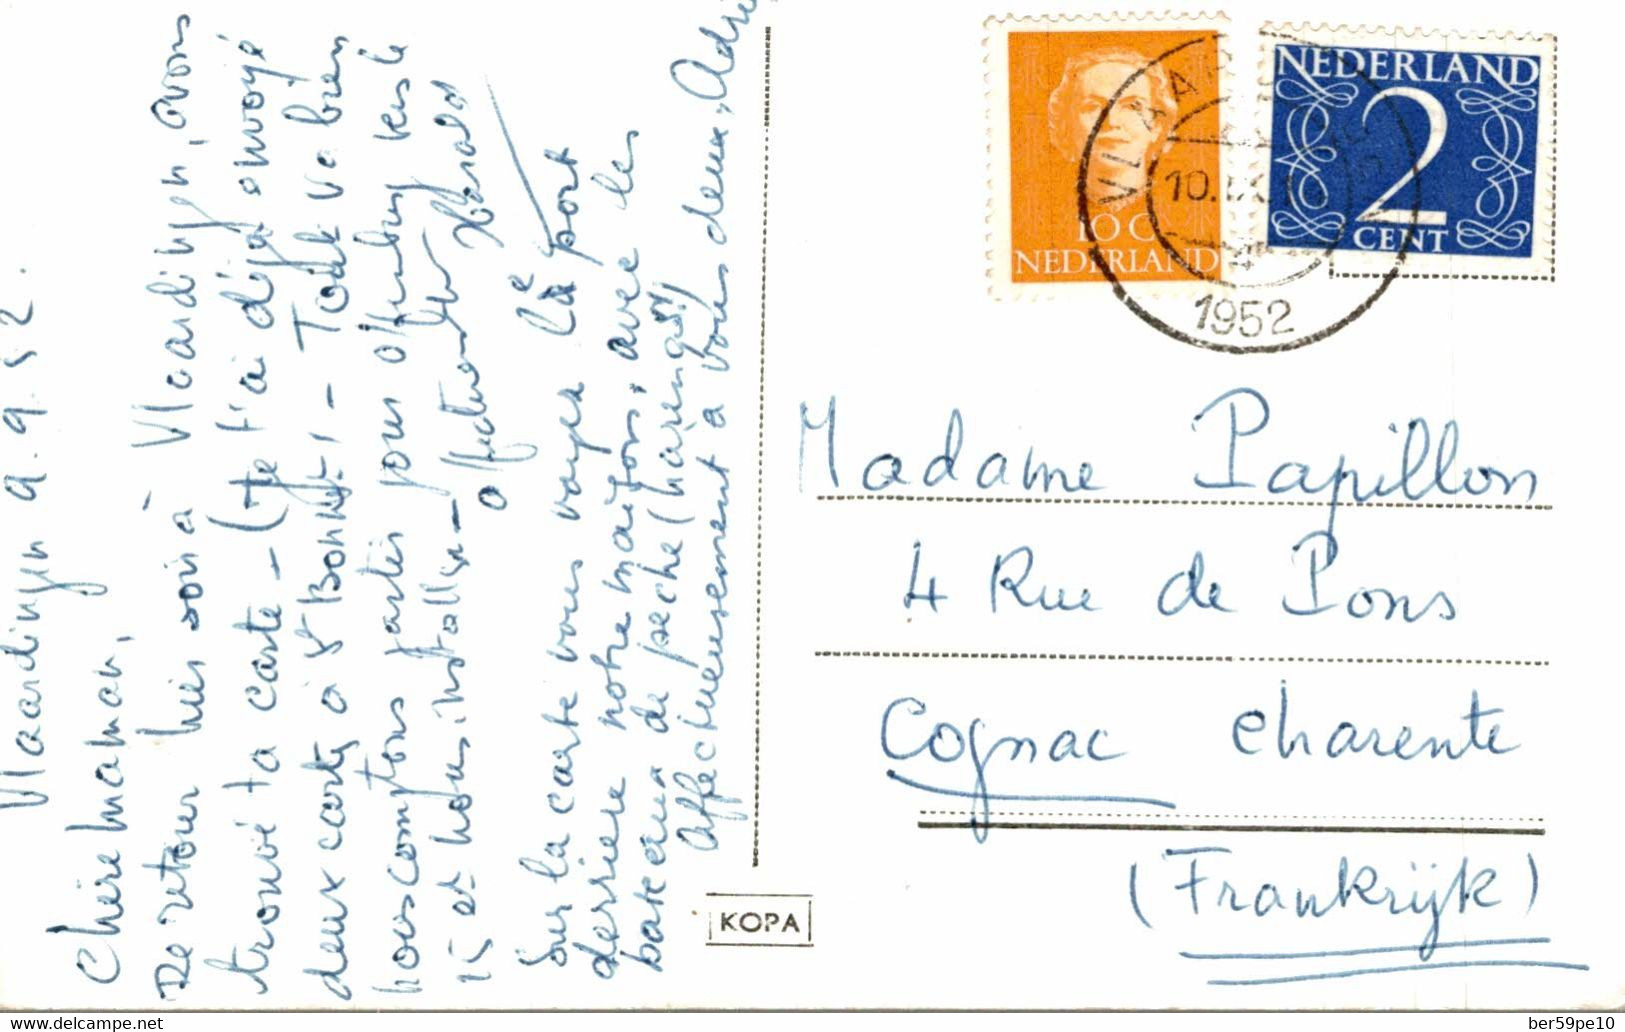 Vlaardingen 9.9.52.
Chère Maman,
De retour hier soir à Vlaardingen, avons
trouvé ta carte - (Je t'ai déjà envoyé
deux cartes à St Bonnet) - Tout va bien
nous comptons partir pour Offenburg vers le
15 et nous installer -
affectueusement Harald
Sur la carte vous voyez là le port
derrière notre maison, avec les
bateaux de pêche (harengs)
Affectueusement à vous deux, Adri
NEDERLAND
2
CENT
10 C
NEDERLAND
VLAARDINGEN
10.IX.
4
1952
Madame Papillon
4 Rue de Pons
Cognac Charente
(Frankrijk)
KOPA
www.delcampe.net
ber59pe10